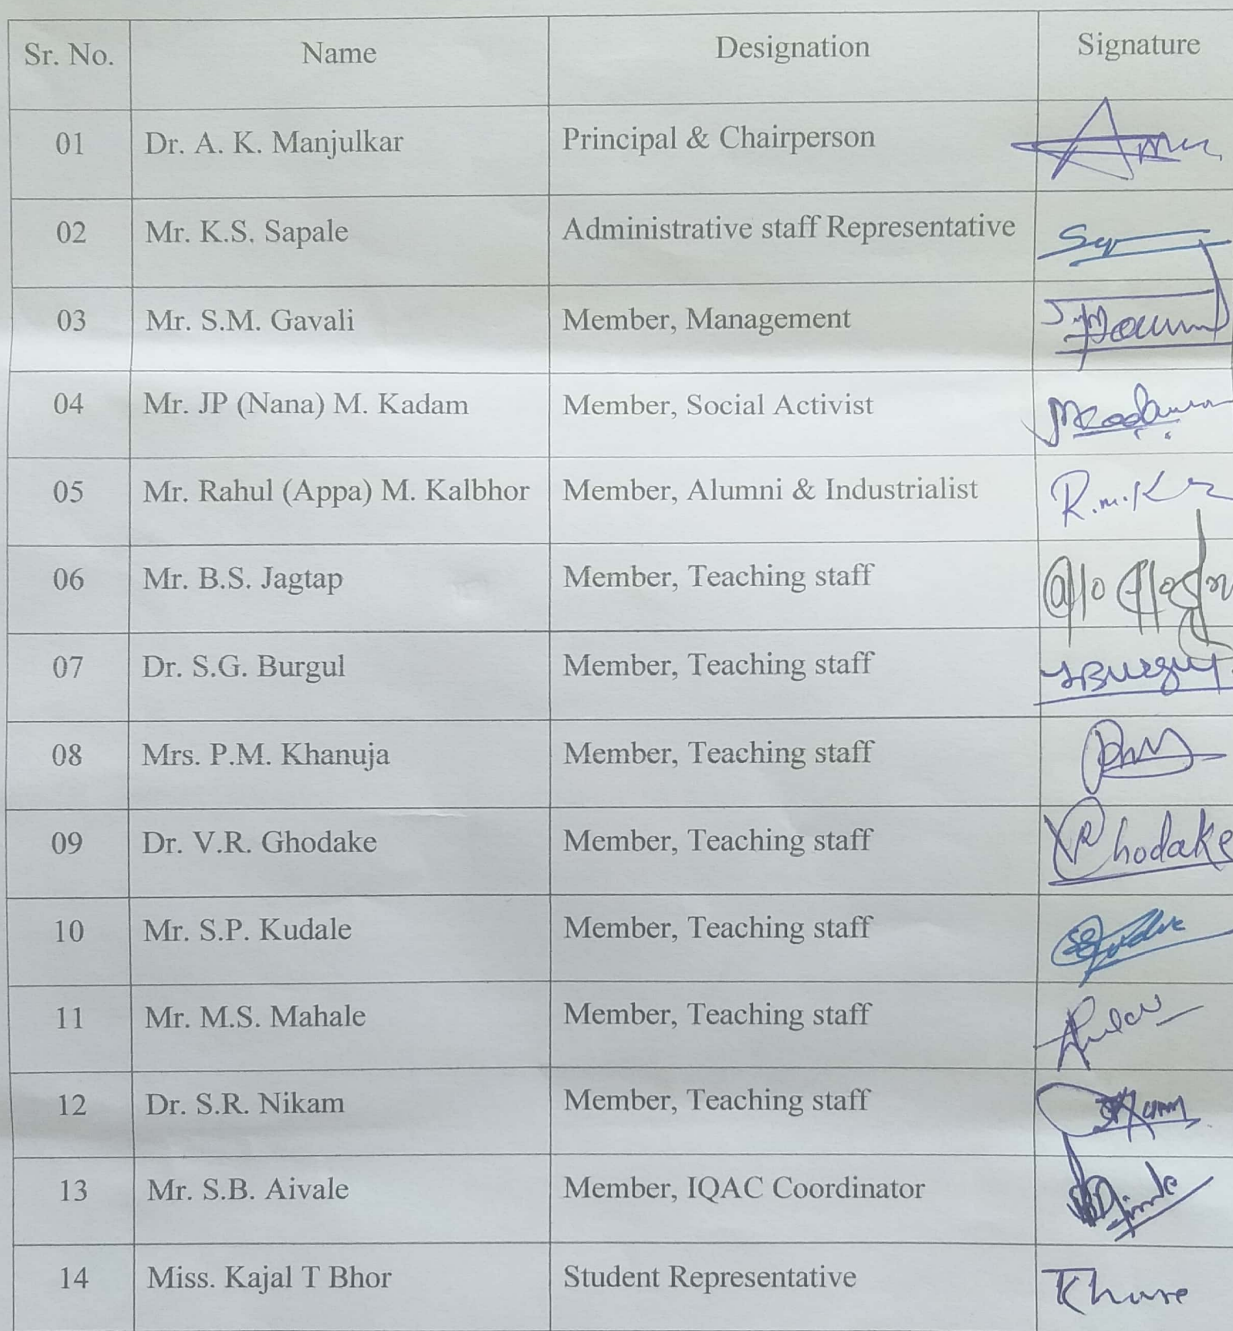 Sr. No. Name Designation Signature
01 Dr. A. K. Manjulkar Principal & Chairperson
02 Mr. K.S. Sapale Administrative staff Representative
03 Mr. S.M. Gavali Member, Management
04 Mr. JP (Nana) M. Kadam Member, Social Activist
05 Mr. Rahul (Appa) M. Kalbhor Member, Alumni & Industrialist
06 Mr. B.S. Jagtap Member, Teaching staff
07 Dr. S.G. Burgul Member, Teaching staff
08 Mrs. P.M. Khanuja Member, Teaching staff
09 Dr. V.R. Ghodake Member, Teaching staff
10 Mr. S.P. Kudale Member, Teaching staff
11 Mr. M.S. Mahale Member, Teaching staff
12 Dr. S.R. Nikam Member, Teaching staff
13 Mr. S.B. Aivale Member, IQAC Coordinator
14 Miss. Kajal T Bhor Student Representative